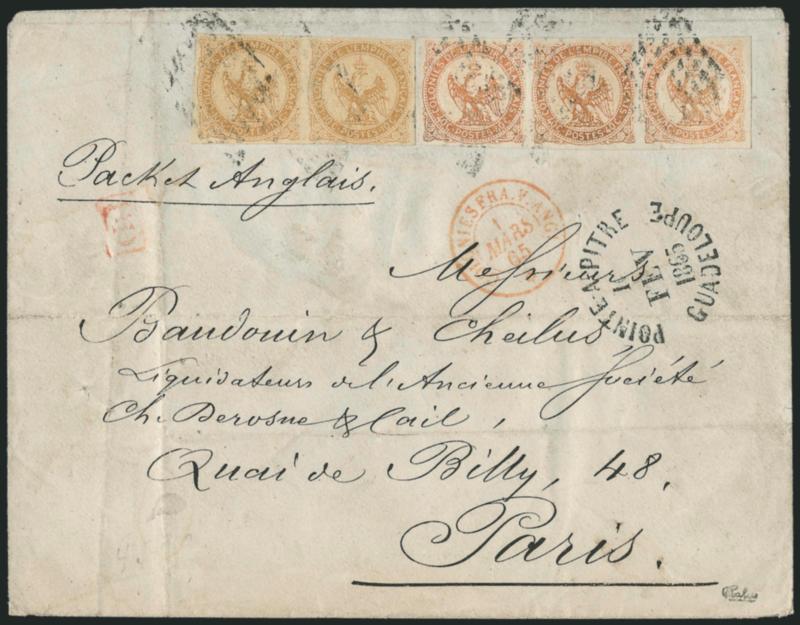 COLONIES DE L'EMPIRE FRANÇAIS
POSTES
COLONIES DE L'EMPIRE FRANÇAIS
POSTES
COLONIES DE L'EMPIRE FRANÇAIS
POSTES
COLONIES DE L'EMPIRE FRANÇAIS
POSTES
COLONIES DE L'EMPIRE FRANÇAIS
POSTES
Packet Anglais.
FRA. V. ANG.
1
MARS
65
POINTE-A-PITRE
10
FEV
1865
GUADELOUPE
Messieurs
Baudouin & Cheilus,
Liquidateurs de l'Ancienne Société
Ch. Derosne & Cail,
Quai de Billy, 48,
Paris.